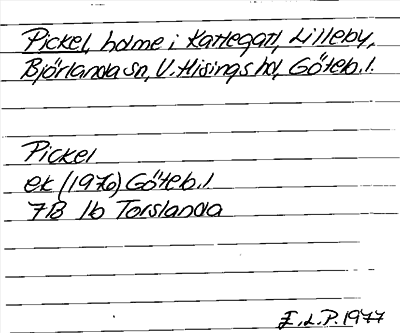 Pickel, holme i Kattegatt, Lilleby,
Björlanda sn, V. Hisings hd, Göteb. l.
Pickel
ek (1970) Göteb. l
7B 1b Torslanda
E.L.P. 1977